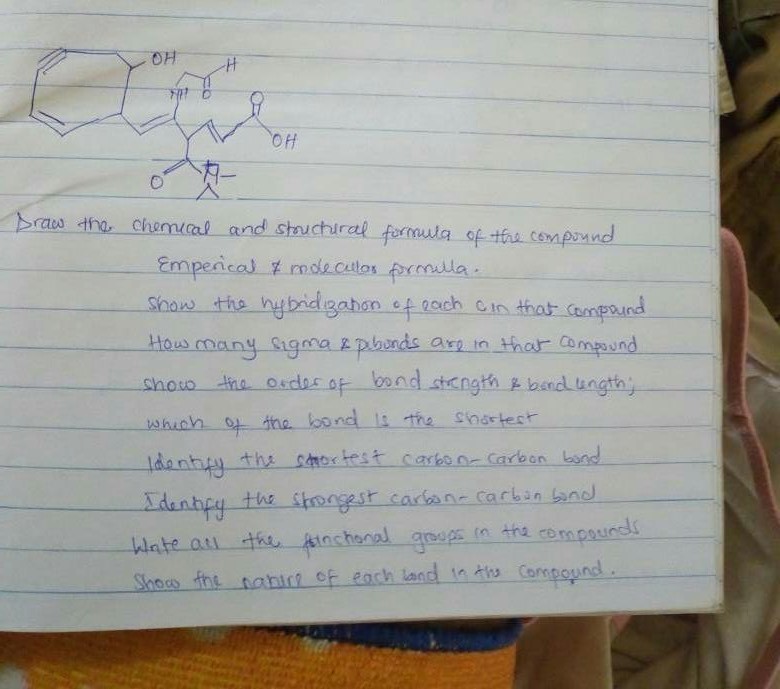 OH
H
NH
O
O
OH
O
N
Draw the chemical and structural formula of the compound
Emperical & molecular formula.
Show the hybridization of each c in that compound
How many sigma & pi bonds are in that compound
show the order of bond strength & bond length;
which of the bond is the shortest
Identify the shortest carbon-carbon bond
Identify the strongest carbon-carbon bond
Write all the functional groups in the compounds
Show the nature of each bond in the compound.